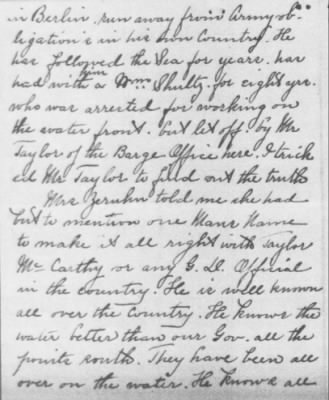 in Berlin. run away from Army ob-
ligation's in his own Country. He
has followed the Sea for years. has
had with him a Wm. Shultz. for eight yrs.
who was arrested for working on
the water front. but let off by Mr
Taylor of the Barge Office here, I trick
ed Mr Taylor to find out the truth
Mrs Zeruhn told me she had
but to mention one Mans Name
to make it all right with Taylor
Mc Carthy or any G. D. Official
in the country. He is well known
all over the Country. He knows the
water better than our Gov. all the
points south. They have been all
over on the water. He knows all